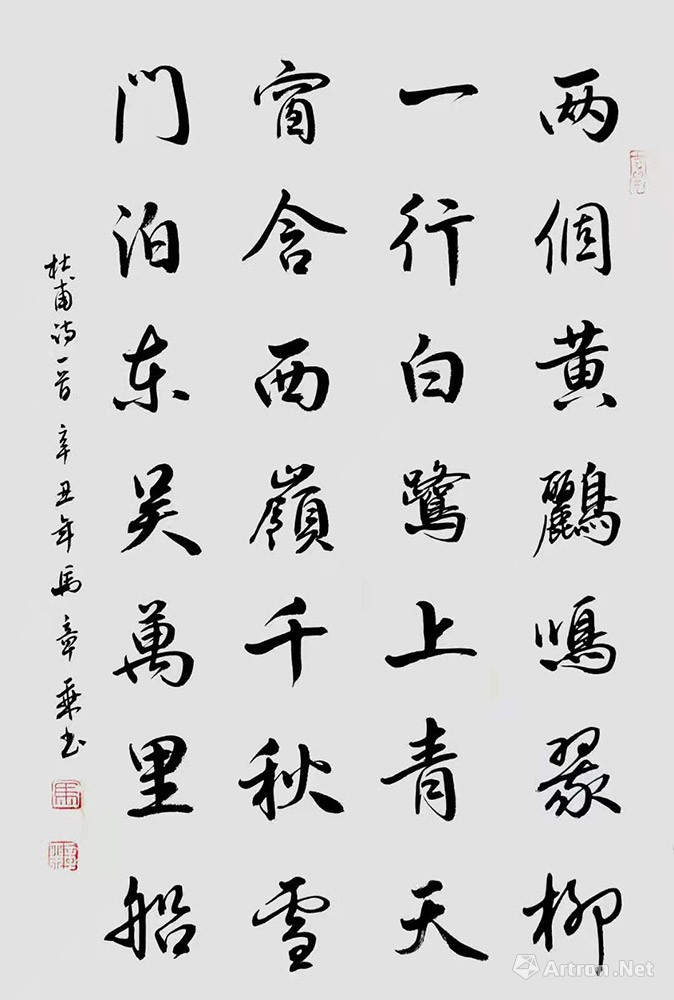 两個黄鸝鳴翠柳
一行白鷺上青天
窗含西嶺千秋雪
門泊东吴萬里船
杜甫诗一首 辛丑年馬章乘书
Artron.Net